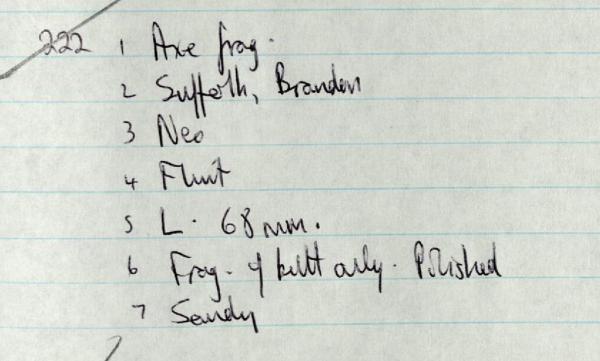 222 1 Axe frag.
2 Suffolk, Brandon
3 Neo
4 Flint
5 L. 68mm.
6 Frag. of butt only. Polished
7 Sandy